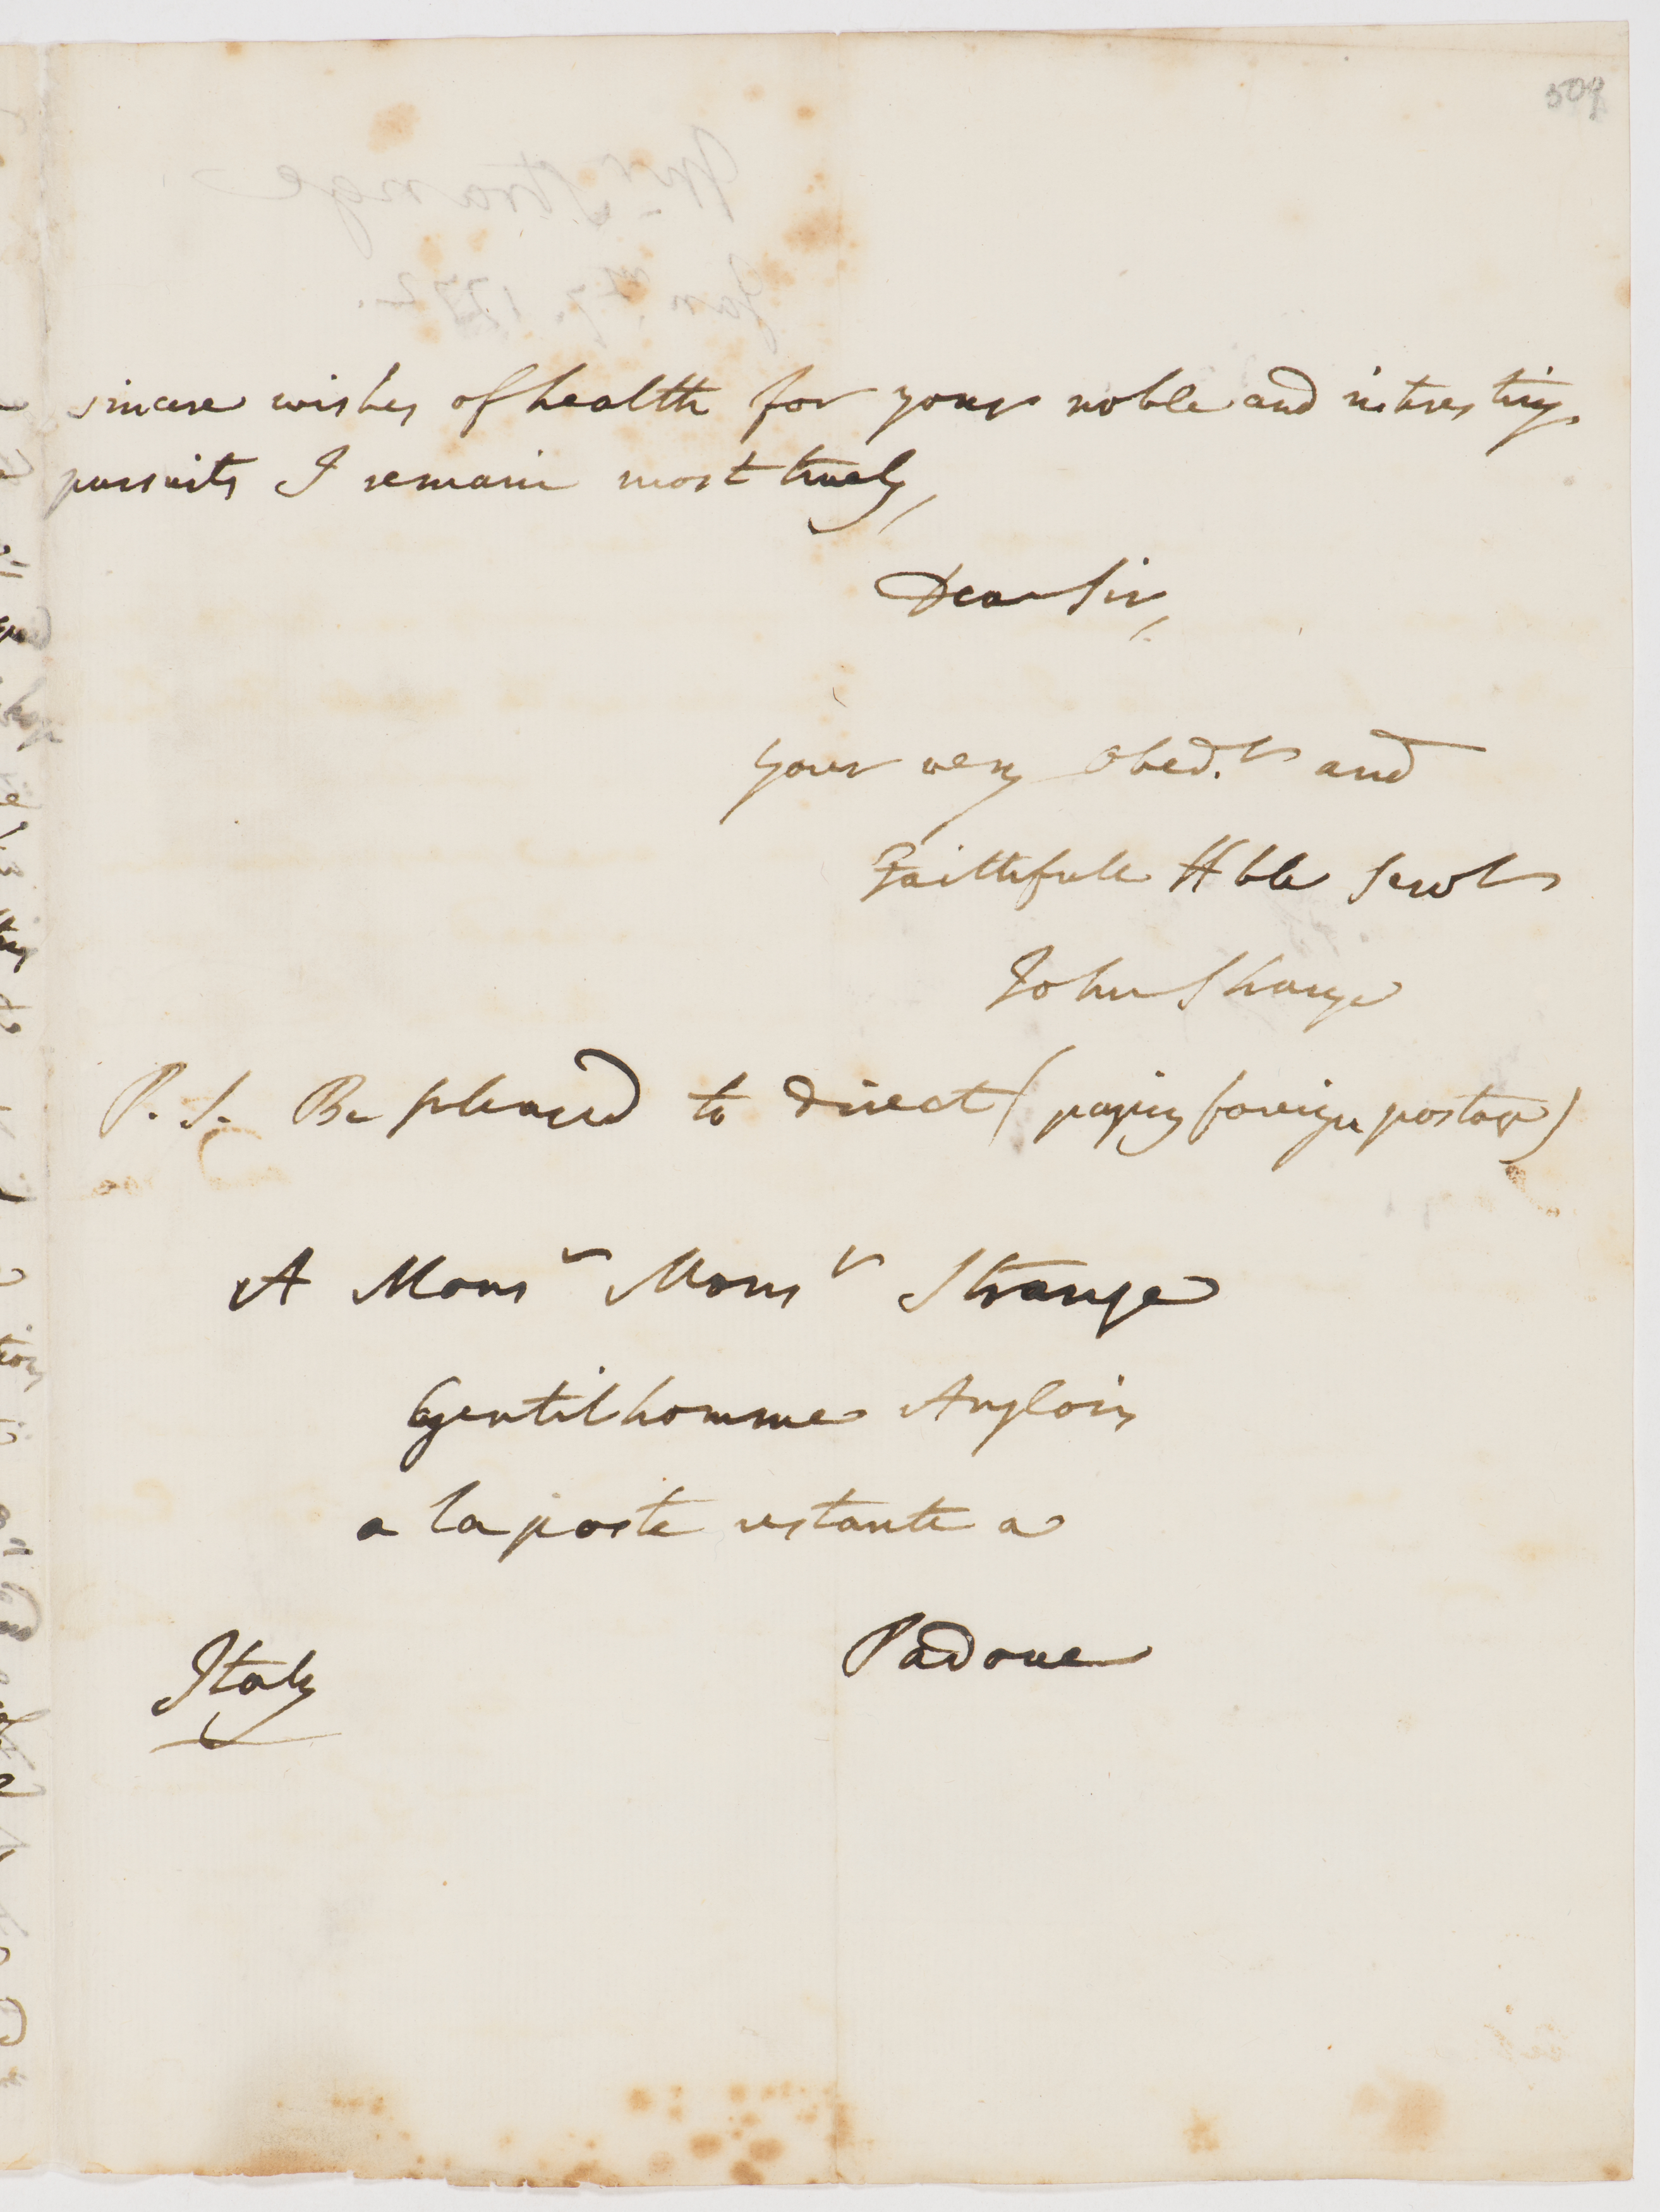 509
sincere wishes of health for your noble and intresting
pursuits I remain most truely,
Dear Sir,
your very Obed.t and
Faithfull Hble Servt
John Strange
P.S. Be pleased to direct (paying foreign postage)
A Monsr Monsr Strange
Gentilhomme Anglois
a la poste restante a
Padoue
Italy